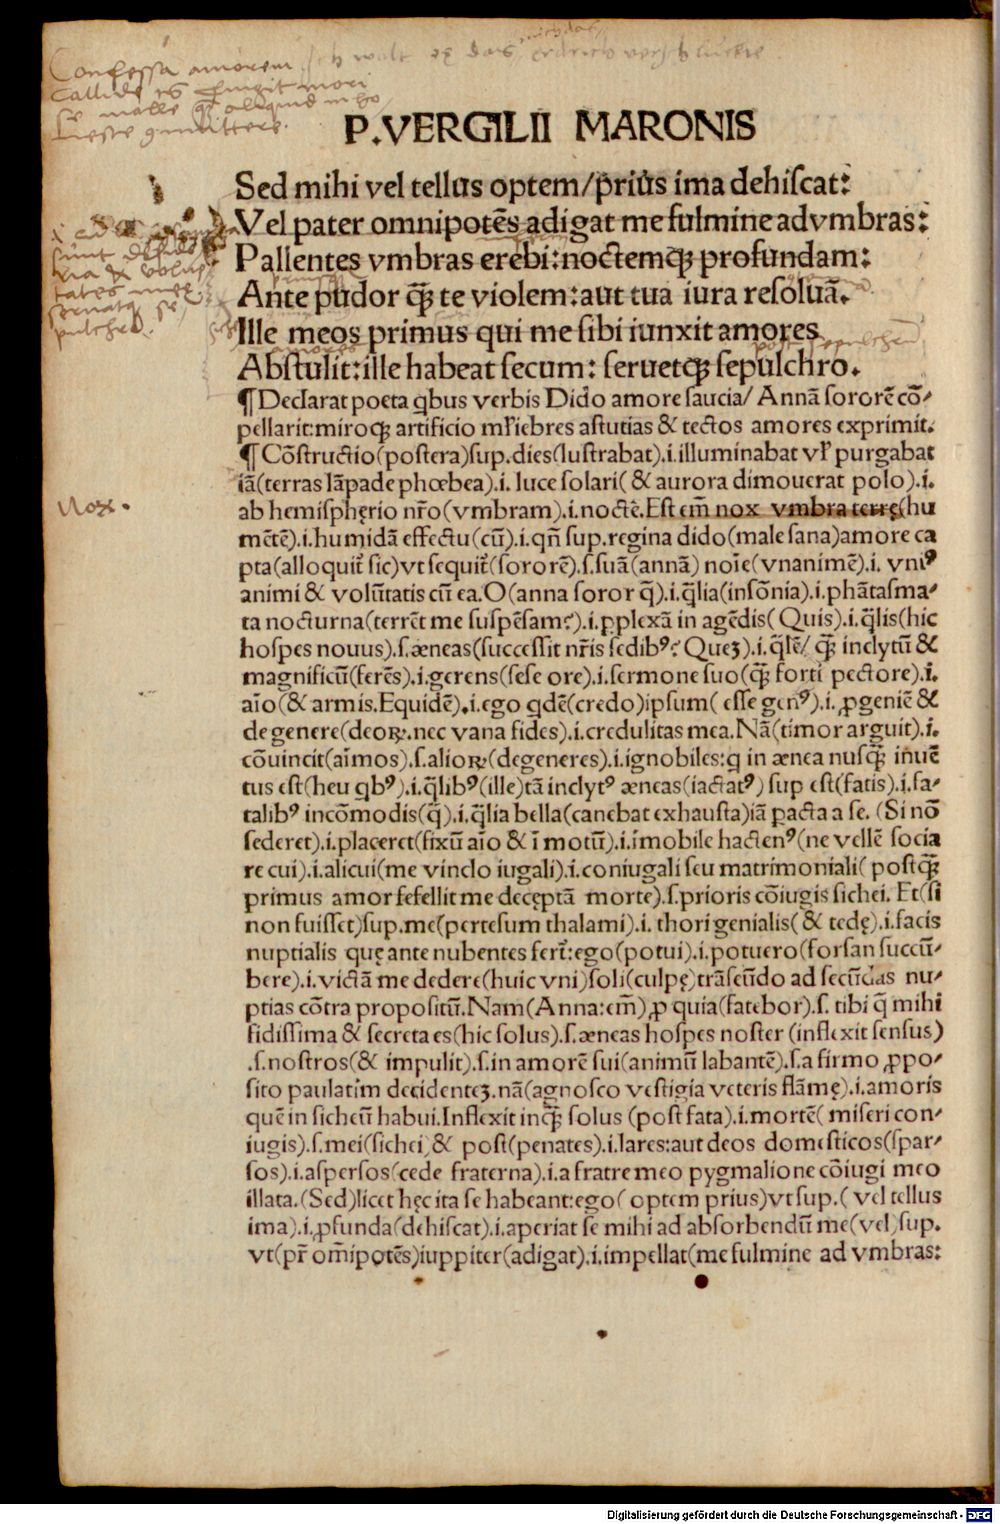 Confessa amorem
callide
se malle aliquid
P.VERGILII MARONIS
Sed mihi vel tellus optem/prius ima dehiscat:
Vel pater omnipotēs adigat me fulmine ad vmbras:
Pallentes vmbras erebi:noctemqꝫ profundam:
Ante pudor q̄ꝫ te violem:aut tua iura resoluā.
Ille meos primus qui me sibi iunxit amores
Abstulit:ille habeat secum: seruetqꝫ sepulchro.
¶ Declarat poeta qbus verbis Dido amore saucia/ Annā sororē cō-
pellarit:miroqꝫ artificio mr̄iebres astutias & tectos amores exprimit.
¶ Cōstructio(postera)sup.dies(lustrabat).i.illuminabat vl̄ purgabat
iā(terras lāpade phœbea).i. luce solari( & aurora dimouerat polo).i.
ab hemisphęrio nr̄o(vmbram).i.noctē.Est em̄ nox vmbra terrę(hu
mētē).i.humidā effectu(cū).i.qn̄ sup.regina dido(male sana)amore ca
pta(alloquit̄ sic)vt sequit̄(sororē).s.suā(annā) noīe(vnanimē).i. vniꝰ
animi & volūtatis cū ea.O(anna soror q̄).i.q̄lia(insōnia).i.phātasma-
ta nocturna(terrēt me suspēsam?).i.ꝑplexā in agēdis( Quis).i.q̄lis(hic
hospes nouus).s.æneas(successit nr̄is sedibꝰ? Queꝫ).i.q̄lē/ q̄ꝫ inclytū &
magnificū(ferēs).i.gerens(sese ore).i.sermone suo(q̄ꝫ forti pectore).i.
aīo(& armis.Equidē).i.ego qdē(credo)ipsum( esse genꝰ).i.ꝓgeniē &
de genere(deoꝝ.nec vana fides).i.credulitas mea.Nā(timor arguit).i.
cōuincit(aīmos).s.alioꝝ(degeneres).i.ignobiles:q in ænea nusq̄ꝫ inuē
tus est(heu qbꝰ).i.q̄libꝰ(ille)tā inclytꝰ æneas(iactatꝰ) sup est(fatis).i.fa-
talibꝰ incōmodis(q̄).i.q̄lia bella(canebat exhausta)iā ꝑacta a se. (Si nō
sederet).i.placeret(fixū aīo & ī motū).i.īmobile hactenꝰ(ne vellē socia
re cui).i.alicui(me vinclo iugali).i.coniugali seu matrimoniali( postq̄ꝫ
primus amor fefellit me decęptā morte).s.prioris cōiugis sichei. Et(si
non fuisset)sup.me(pertesum thalami).i. thori genialis( & tedę).i.facis
nuptialis quę ante nubentes fert̄:ego(potui).i.potuero(forsan succū-
bere).i.victā me dedere(huic vni)soli(culpę)trāseūdo ad secūdas nu-
ptias cōtra propositū.Nam(Anna:em̄)ꝓ quia(fatebor).s. tibi q̄ mihi
fidissima & secreta es(hic solus).s.æneas hospes noster (inflexit sensus)
.s.nostros(& impulit).s.in amorē sui(animū labantē).s.a firmo ꝓpo-
sito paulatim decidenteꝫ.nā(agnosco vestigia veteris flāmę).i.amoris
quē in sicheū habui.Inflexit inq̄ꝫ solus (post fata).i.mortē( miseri con-
iugis).s.mei(sichei) & post(penates).i.lares:aut deos domesticos(spar-
sos).i.aspersos(cede fraterna).i.a fratre meo pygmalione cōiugi meo
illata.(Sed)licet hęc ita se habeant:ego( optem prius)vt sup.( vel tellus
ima).i.ꝓfunda(dehiscat).i.aperiat se mihi ad absorbendū me(vel)sup.
vt(pr̄ om̄ipotēs)iuppiter(adigat).i.impellat(me fulmine ad vmbras:
Nox.
Digitalisierung gefördert durch die Deutsche Forschungsgemeinschaft - DFG